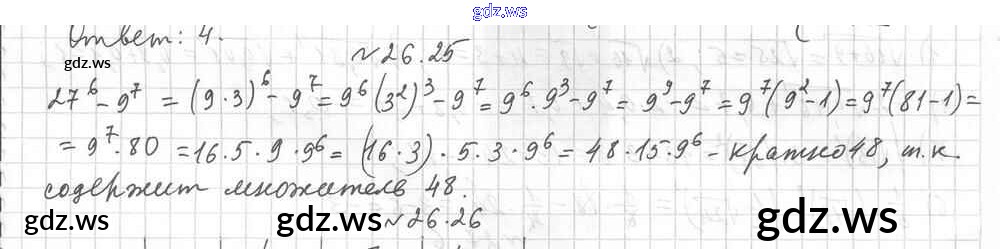 gdz.ws
Ответ: 4.
gdz.ws
№26.25
27⁶ - 9⁷ = (9·3)⁶ - 9⁷ = 9⁶(3²)³ - 9⁷ = 9⁶·9³ - 9⁷ = 9⁹ - 9⁷ = 9⁷(9² - 1) = 9⁷(81 - 1) =
= 9⁷·80 = 16·5·9·9⁶ = (16·3)·5·3·9⁶ = 48·15·9⁶ - кратно 48, т.к.
содержит множитель 48.
№26.26
gdz.ws gdz.ws gdz.ws gdz.ws